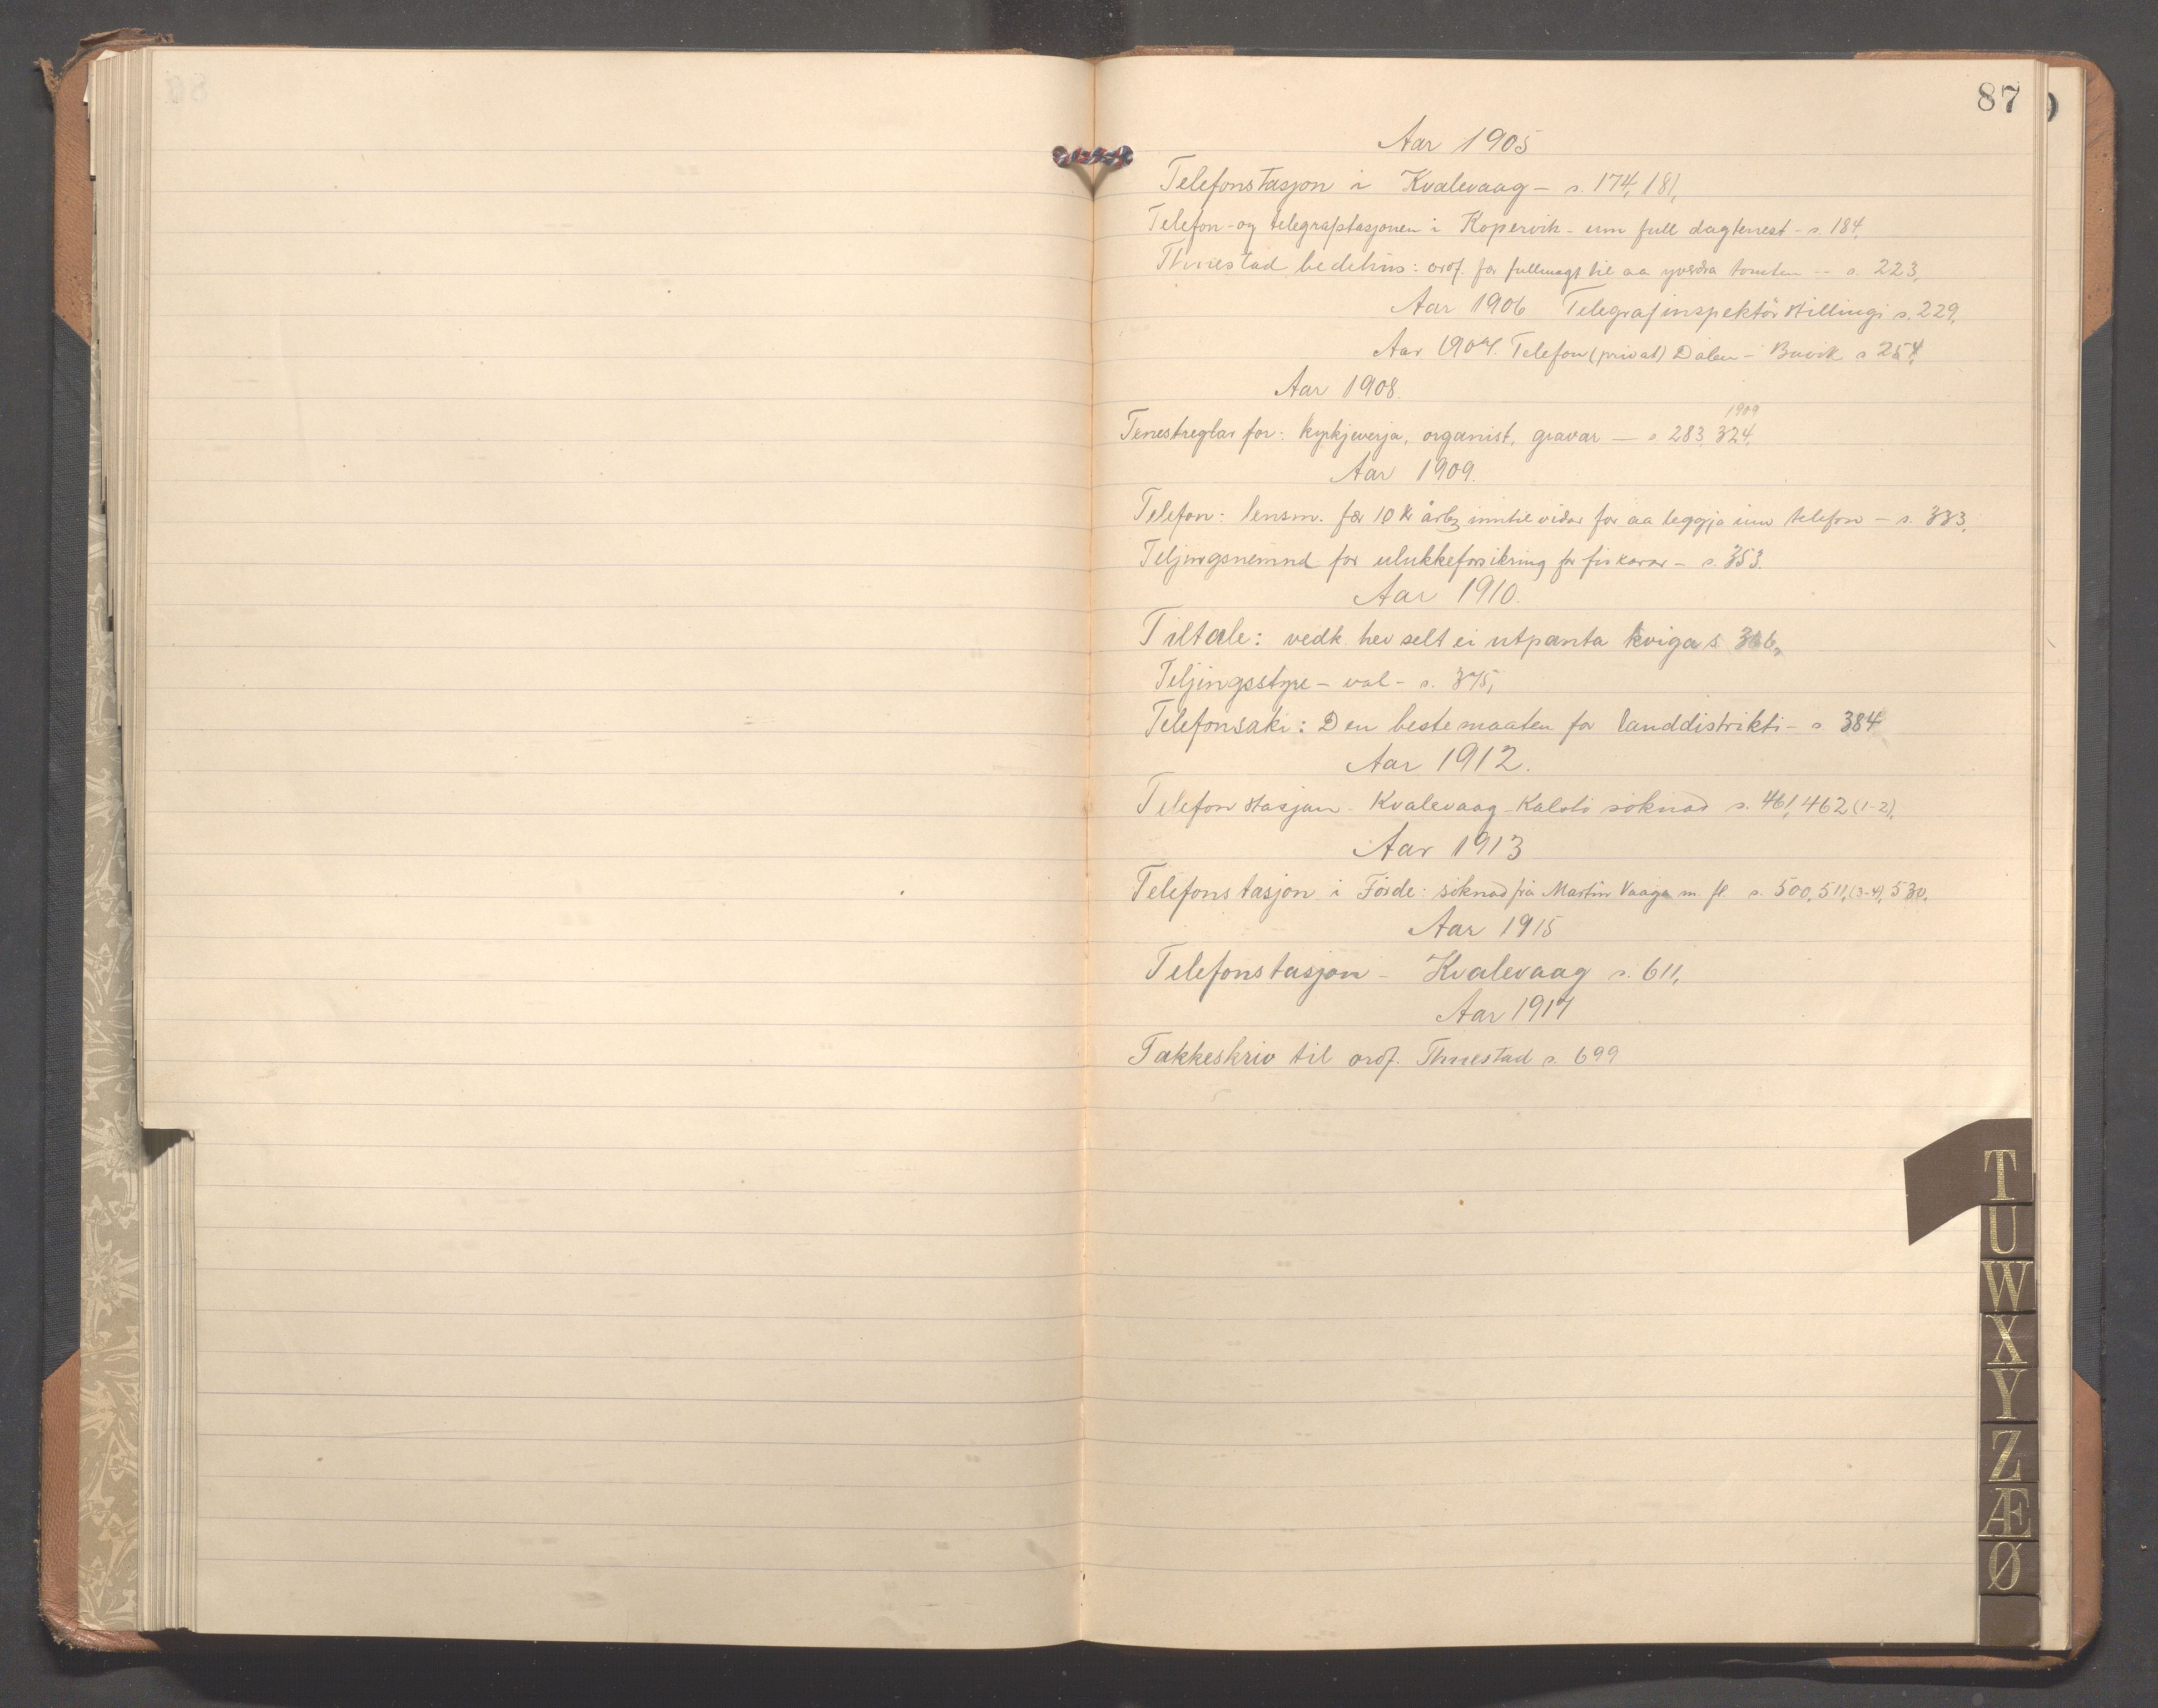 87
Aar 1905
Telefonstasjon i Kvalevaag – s. 174, 181,
Telefon- og telegrafstasjonen i Kopervik – um full dagtenest – s. 184,
Thuestad bedehus: ordf. før fullmagt til aa yverdra tomten -- s. 223,
Aar 1906 Telegrafinspektør stillingi s. 229,
Aar 1907. Telefon (privat) Dalen – Buvik s 254,
Aar 1908.
1909
Tenestreglar for: kyrkjeverja, organist, gravar — s. 283, 324,
Aar 1909.
Telefon: lensm. fær 10 kr årleg inntil vidar for aa leggja inn telefon – s. 333,
Teljingsnemnd for ulukkeforsikring for fiskarar – s. 353.
Aar 1910.
Tiltale: vedk. hev selt ei utpanta kviga s. 366,
Teljingsstyre – val – s. 375,
Telefonsaki: Den beste maaten for landdistrikti – s. 384
Aar 1912.
Telefonstasjon – Kvalevaag – Kalsto søknad s. 461, 462 (1-2),
Aar 1913
Telefonstasjon i Förde: söknad frå Martin Vaage m. fl. s. 500, 511, (3-4), 530,
Aar 1915
Telefonstasjon – Kvalevaag s. 611,
Aar 1917
Takkeskriv til ordf. Thuestad s. 699
T
U
W
X
Y
Z
Æ
Ø